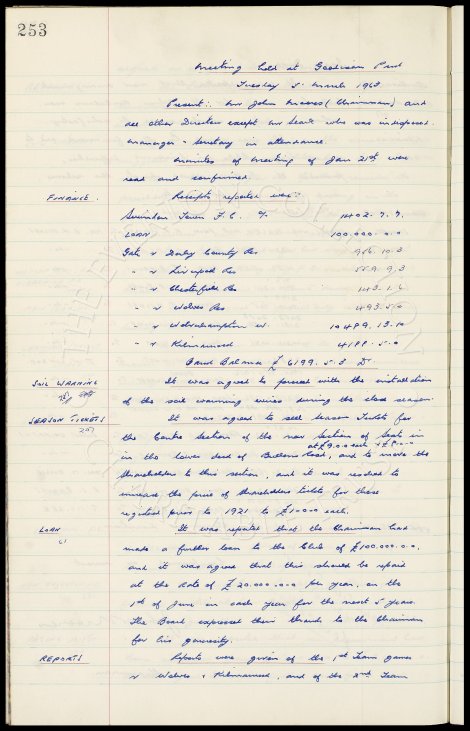 253
Meeting held at Goodison Park
Tuesday 5. March 1963.
Present:. Mr John Moores (Chairman) and
all other Directors except Mr Searle who was indisposed.
Manager + Secretary in attendance.
Minutes of Meeting of Jan 21st were
read and confirmed.
FINANCE. Receipts reported were:
Swindon Town F.C. 1402. 7. 9.
LOAN 100.000. 0. 0
Gate v Derby County Res 10. 3
" v Liverpool Res 559. 9. 3
" v Chesterfield Res 143. 1. 6
" v Wolves Res 493. 5. 0
" v Wolverhampton W. 10489. 13. 10
" v Kilmarnock 4188. 5. 0
Bank Balance £ 6199. 5. 3 Dr.
SOIL WARMING It was agreed to proceed with the installation
of the soil warming wires during the close season.
SEASON TICKETS It was agreed to sell Season Tickets for
the Centre section of the new section of Seats in
at £9.0.0 each
in the lower deck of Bullens Road, and to move the
Shareholders to this section, and it was resolved to
increase the price of Shareholders tickets for those
registered prior to 1921 to each.
LOAN It was reported that the Chairman had
made a further loan to the Club of £100.000. 0. 0,
and it was agreed that this should be repaid
at the Rate of £20.000. 0. 0 per year, on the
1st of June in each year for the next 5 years.
The Board expressed their thanks to the Chairman
for his generosity.
REPORTS Reports were given of the 1st Team games
v Wolves + Kilmarnock, and of the 2nd Team